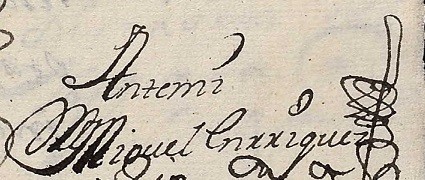 Antemi
Miguel Enrriquez